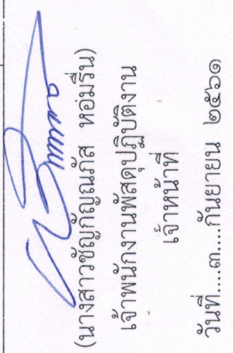 (นางสาวชัญกัญณภัส หอมรื่น)
เจ้าพนักงานพัสดุปฏิบัติงาน
เจ้าหน้าที่
วันที่.....๓.....กันยายน ๒๕๖๑